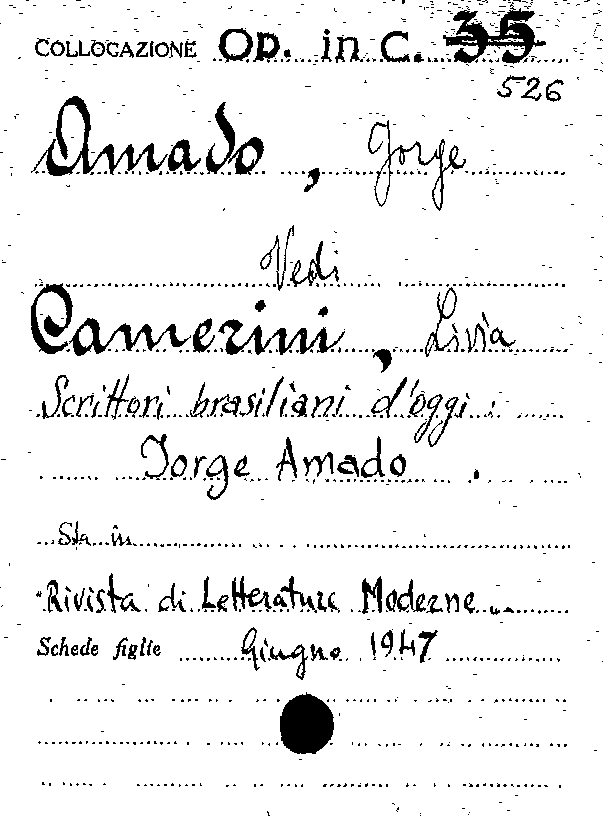 COLLOCAZIONE OD. in C. 35
526
Amado, Jorge
Vedi
Camerini, Livia
Scrittori brasiliani d'oggi:
Jorge Amado.
Sta in
"Rivista di Letterature Moderne"
Schede figlie Giugno 1947